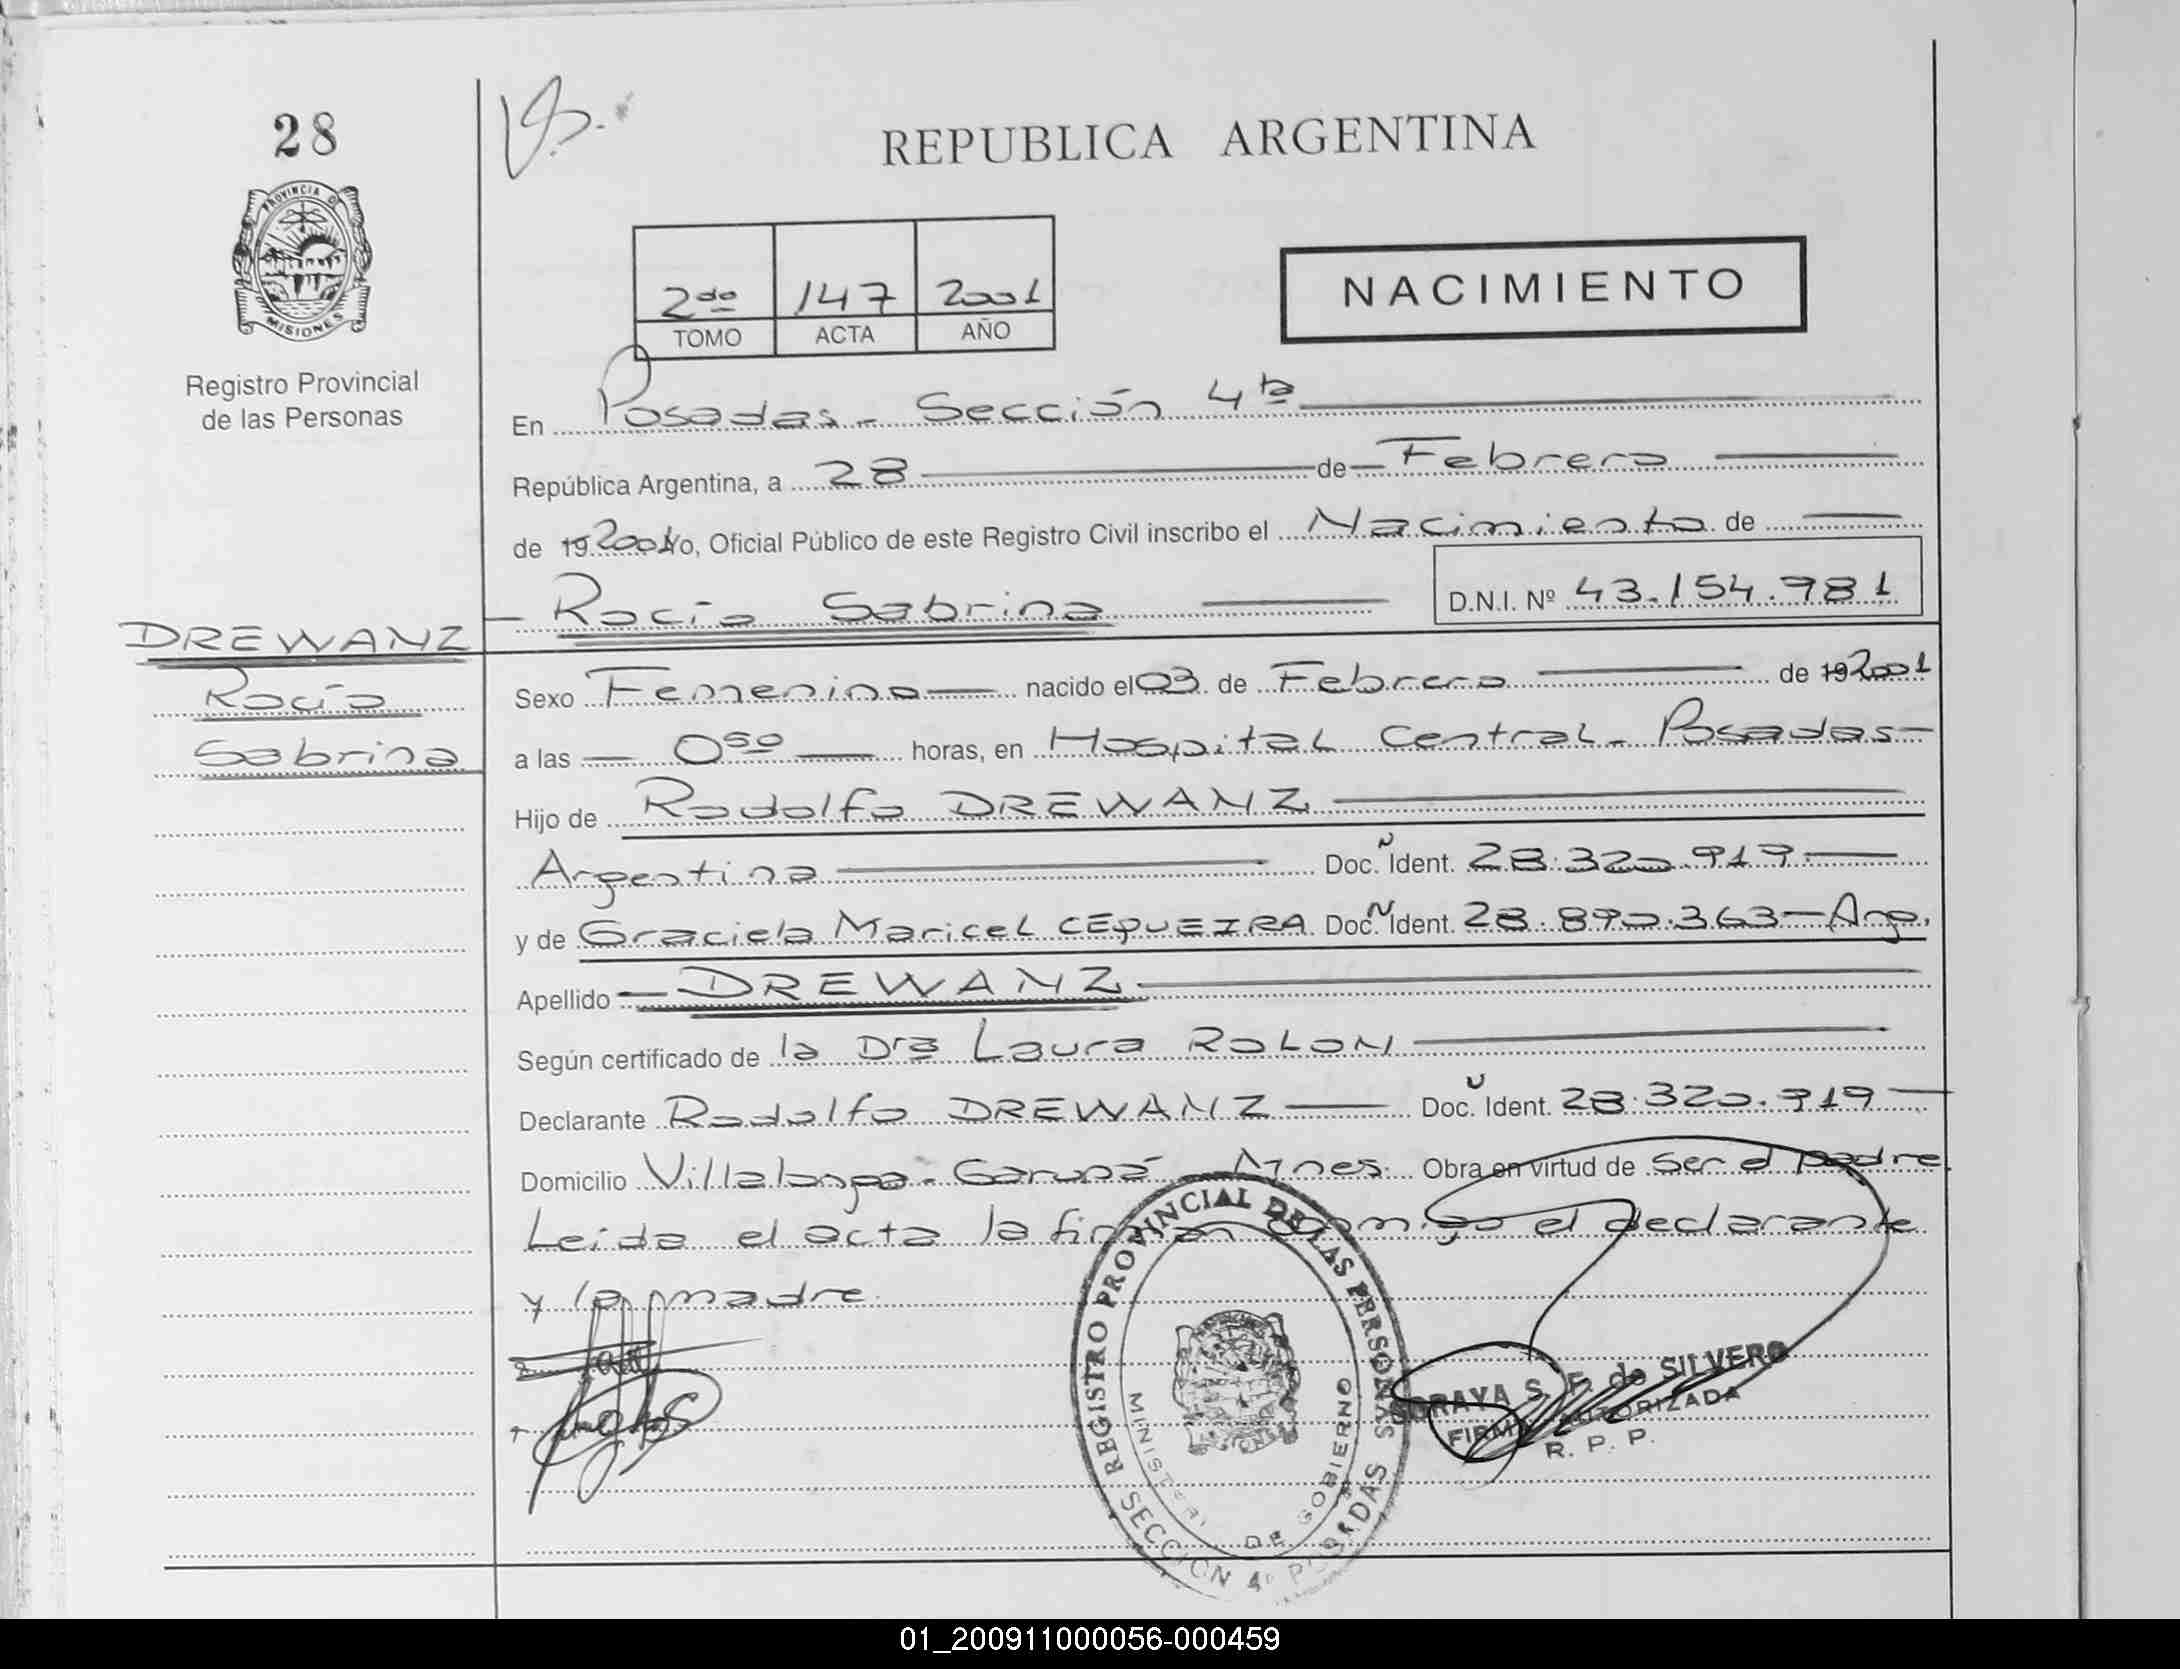 28
PROVINCIA D
MISIONES
Registro Provincial
de las Personas
REPUBLICA ARGENTINA
2do 147 2001
TOMO ACTA AÑO
NACIMIENTO
En Posadas - Sección 4ta
República Argentina, a 28 de Febrero
de 19 2001 Yo, Oficial Público de este Registro Civil inscribo el Nacimiento de
Rocío Sabrina D.N.I. Nº 43.154.981
DREWANZ
Rocío
Sabrina
Sexo Femenino nacido el 03 de Febrero de 19 2001
a las 0 50 horas, en Hospital Central - Posadas -
Hijo de Rodolfo DREWANZ
Argentina Doc. N Ident. 28.320.919 -
y de Graciela Maricel CEQUEIRA Doc. N Ident. 28.890.363 - Arg.
Apellido - DREWANZ
Según certificado de la Dra Laura ROLON
Declarante Rodolfo DREWANZ Doc. Ident. 28.320.919 -
Domicilio Villalonga - Garupá - Mnes. Obra en virtud de Ser el padre.
Leída el acta la firman conmigo el declarante
y la madre.
REGISTRO PROVINCIAL DE LAS PERSONAS
MINISTERIO DE GOBIERNO
SECCION 4ª POSADAS
SORAYA S. F. de SILVERO
FIRMA AUTORIZADA
R. P. P.
01_200911000056-000459